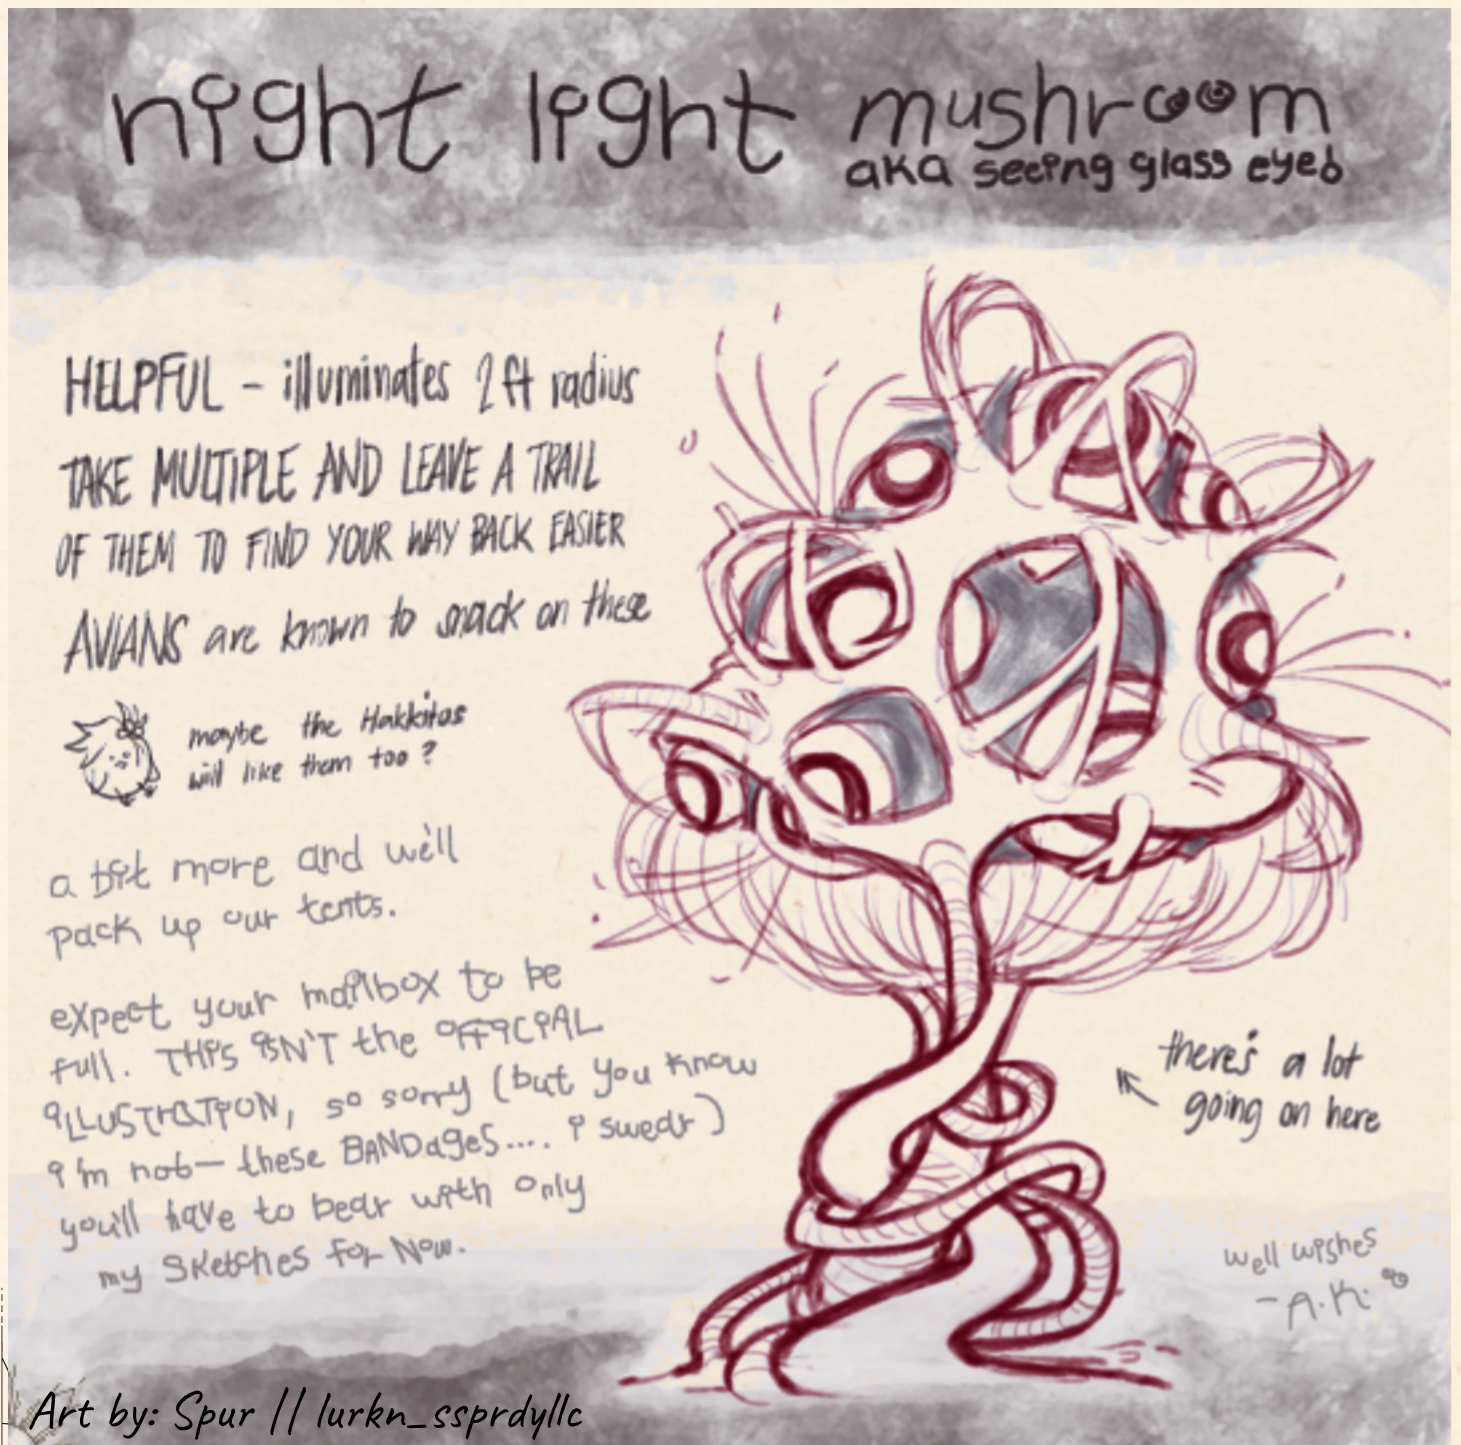 night light mushroom
aka seeing glass eyes
HELPFUL - illuminates 2 ft radius
TAKE MULTIPLE AND LEAVE A TRAIL
OF THEM TO FIND YOUR WAY BACK EASIER
AVIANS are known to snack on these
maybe the Hakkitas
will like them too?
a bit more and we'll
pack up our tents.
expect your mailbox to be
full. THis isN'T the OFFiCiAL
iLLUSTRATiON, so sorry (but you know
i'm not— these BANDageS.... i swear)
you'll have to bear with only
my SKetches for Now.
there's a lot
going on here
well wishes
- A.K.
Art by: Spur // lurkn_ssprdyllc